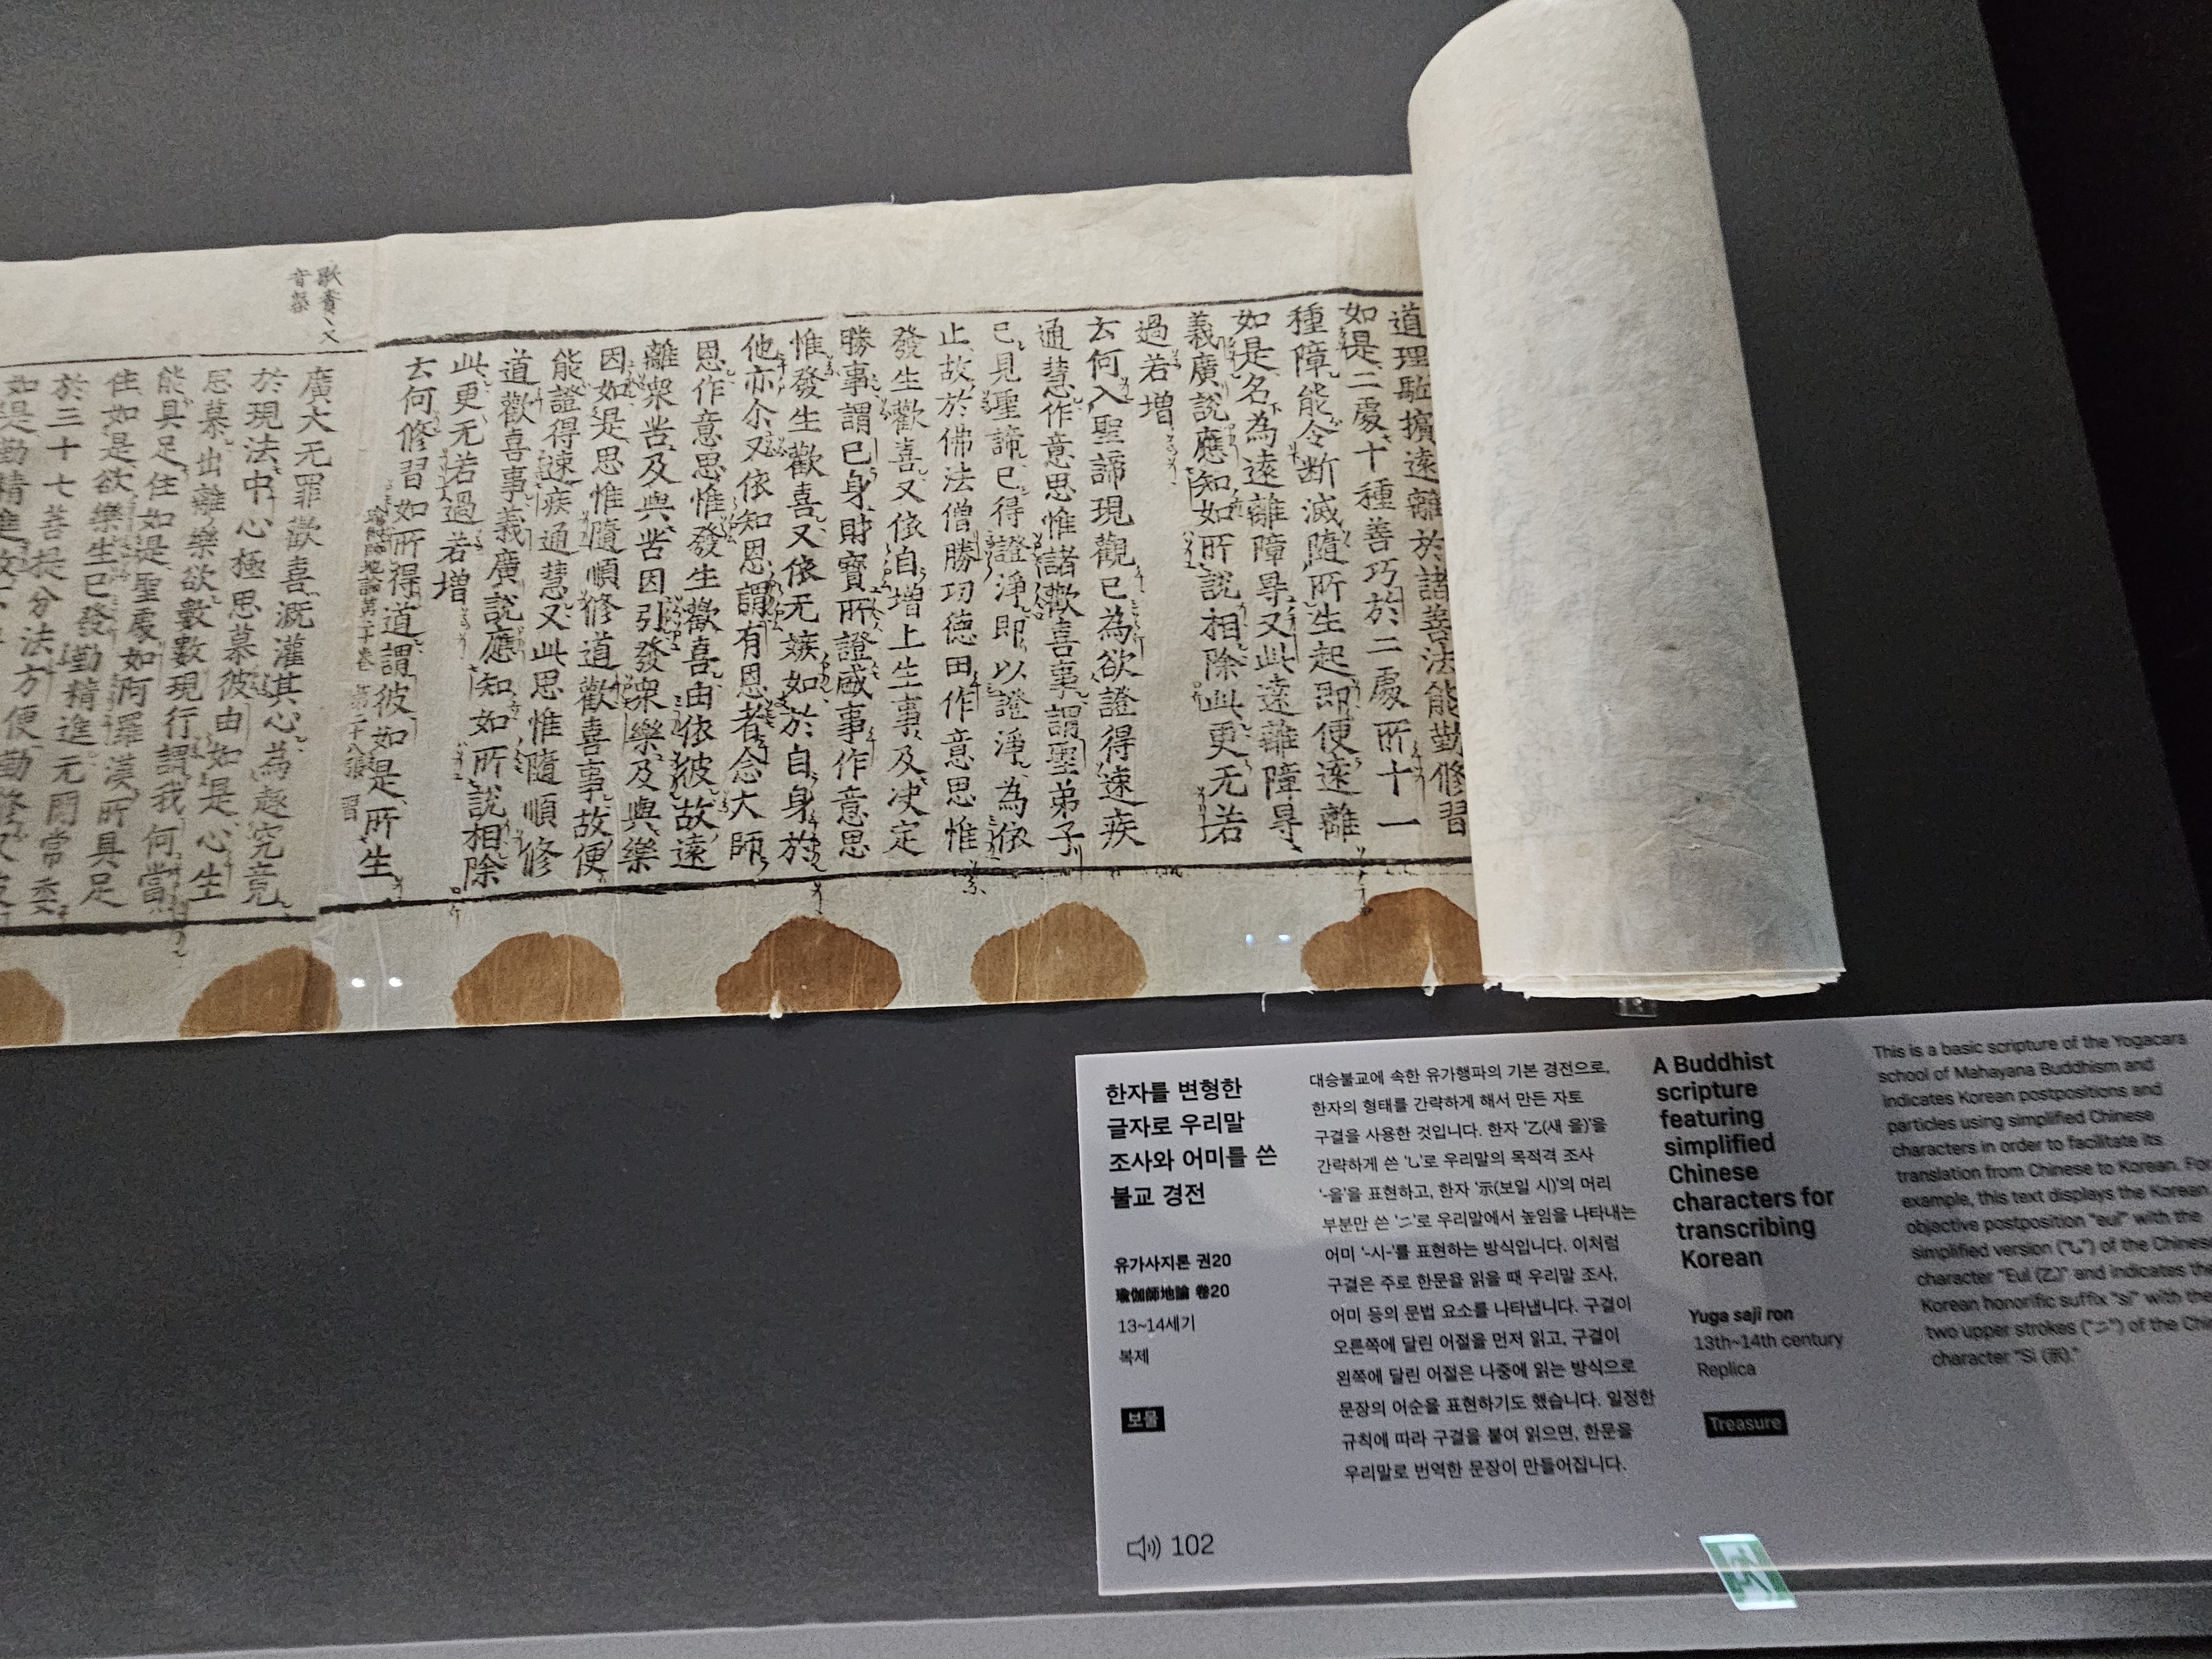 道理駈擯遠離於諸善法能勤修習
如是二處十種善巧於二處所十一
種障能令断滅隨所生起即便遠離
如是名為遠離障㝵又此遠離障㝵
義廣說應知如所說相除此更无若
過若增
云何入聖諦現觀已為欲證得速疾
通慧作意思惟諸歡喜事謂聖弟子
已見聖諦已得證淨即以證淨為依
止故於佛法僧勝功德田作意思惟
發生歡喜又依自增上生事及决定
勝事謂已身財寶所證盛事作意思
惟發生歡喜又依无嫉如於自身於
他亦尒又依知恩謂有恩者念大師
恩作意思惟發生歡喜由依彼故遠
離衆苦及與苦因引發衆樂及與樂
因如是思惟隨順修道歡喜事故便
能證得速疾通慧又此思惟隨順修
道歡喜事義廣說應知如所說相除
此更无若過若增
云何修習如所得道謂彼如是所生
瑜伽師地論第二十卷
廣大无罪歡喜溉灌其心為趣究竟
於現法中心極思慕彼由如是心生
思慕出離樂欲數數現行謂我何當
能具足住如是聖處如阿羅漢所具足
住如是欲樂生已發勤精進无間常委
於三十七菩提分法方便勤修
如是勤精進故
한자를 변형한
글자로 우리말
조사와 어미를 쓴
불교 경전
유가사지론 권20
瑜伽師地論 卷20
13~14세기
복제
보물
102
대승불교에 속한 유가행파의 기본 경전으로,
한자의 형태를 간략하게 해서 만든 자토
구결을 사용한 것입니다. 한자 '乙(새 을)'을
간략하게 쓴 '乚'로 우리말의 목적격 조사
'-을'을 표현하고, 한자 '示(보일 시)'의 머리
부분만 쓴 '二'로 우리말에서 높임을 나타내는
어미 '-시-'를 표현하는 방식입니다. 이처럼
구결은 주로 한문을 읽을 때 우리말 조사,
어미 등의 문법 요소를 나타냅니다. 구결이
오른쪽에 달린 어절을 먼저 읽고, 구결이
왼쪽에 달린 어절은 나중에 읽는 방식으로
문장의 어순을 표현하기도 했습니다. 일정한
규칙에 따라 구결을 붙여 읽으면, 한문을
우리말로 번역한 문장이 만들어집니다.
A Buddhist
scripture
featuring
simplified
Chinese
characters for
transcribing
Korean
Yuga saji ron
13th~14th century
Replica
Treasure
This is a basic scripture of the Yogacara
school of Mahayana Buddhism and
indicates Korean postpositions and
particles using simplified Chinese
characters in order to facilitate its
translation from Chinese to Korean. For
example, this text displays the Korean
objective postposition "eul" with the
simplified version ("乚") of the Chinese
character "Eul (乙)" and indicates the
Korean honorific suffix "si" with the
two upper strokes ("二") of the
character "Si (示)."